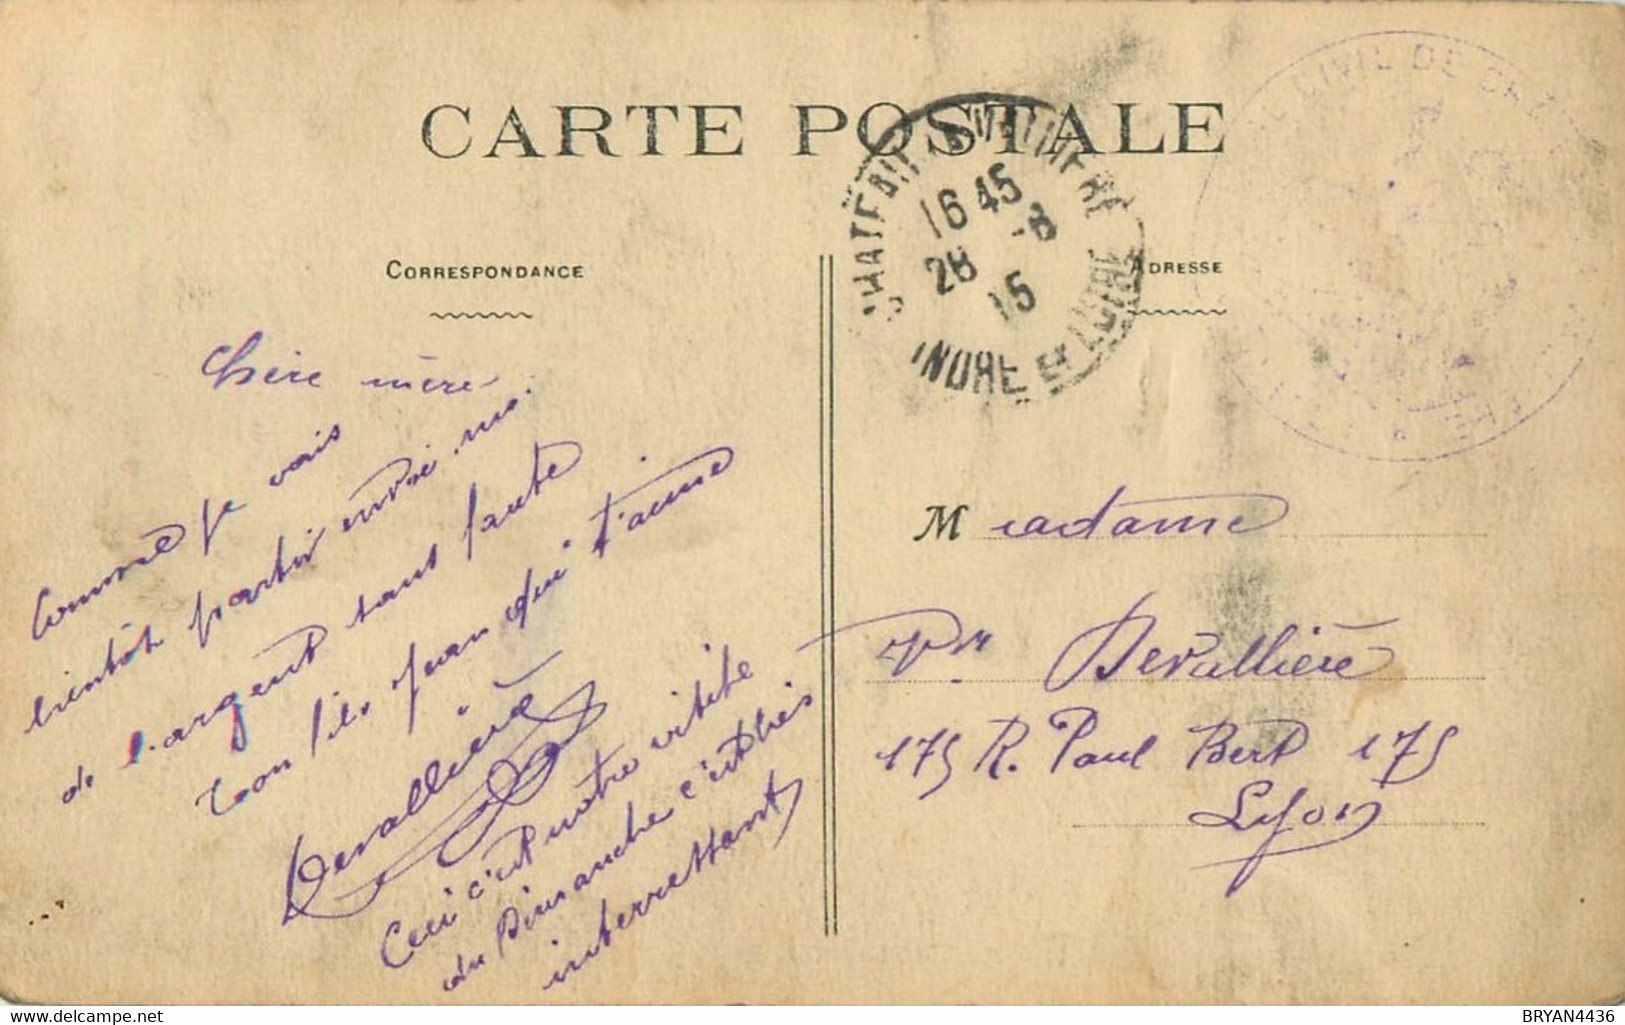 CARTE POSTALE
CORRESPONDANCE
ADRESSE
16 45
28 -8
15
INDRE ET LOIRE
CIVIL DE
Chère mère
Comme je vais
bientôt partir envoi moi
de l'argent sans faute
ton fils Jean qui t'aime
Devallière
Ceci c'est notre visite
du Dimanche c'est très
interressant
Madame
Vve Devallière
175 R. Paul Bert 175
Lyon
www.delcampe.net
BRYAN4436